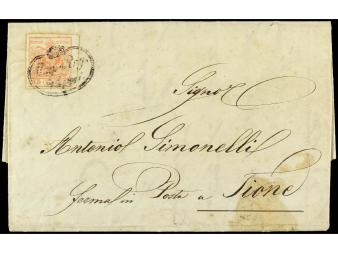 Signor
Antonio Simonelli
ferma in Posta a Tione